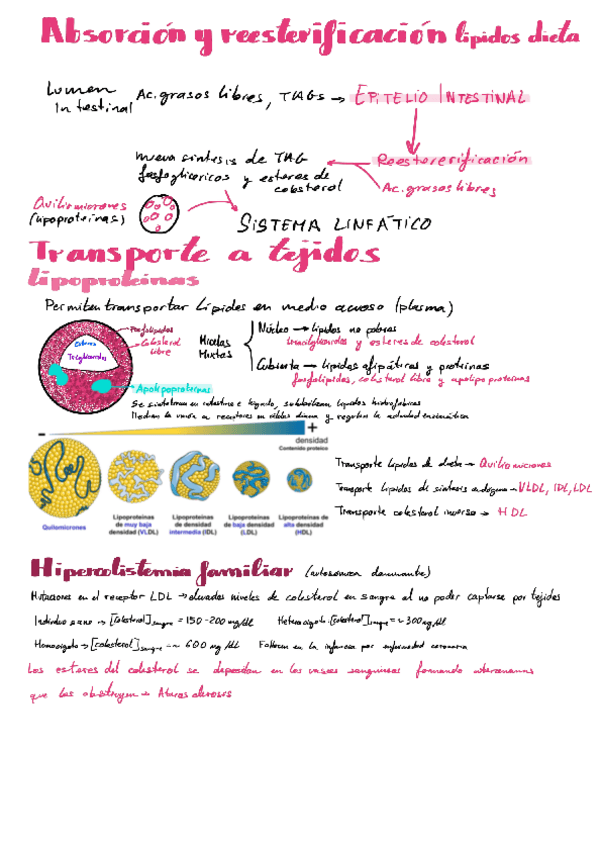 Absorción y reesterificación lipidos dieta
Lumen Intestinal
Ac. grasos libres, TAGs → EPITELIO INTESTINAL
Reesterificación
Ac. grasos libres
nueva sintesis de TAG
fosfoglicericos y esteres de colesterol
Quilomicrones
(lipoproteinas)
SISTEMA LINFÁTICO
Transporte a tejidos
Lipoproteinas
Permiten transportar lípidos en medio acuoso (plasma)
Fosfolipidos
Colesterol libre
Esteres
Triglicéridos
Apolipoproteinas
Micelas Mixtas
Núcleo → lípidos no polares
triacilgliceridos y esteres de colesterol
Cubierta → lípidos afipáticos y proteinas
fosfolípidos, colesterol libre y apolipoproteinas
Se sintetizan en intestino e hígado, solubilizan lípidos hidrofóbicos
Median la unión a receptores en células diana y regulan la actividad enzimática
− +
densidad
Contenido proteico
Quilomicrones
Lipoproteínas de muy baja densidad (VLDL)
Lipoproteínas de densidad intermedia (IDL)
Lipoproteínas de baja densidad (LDL)
Lipoproteínas de alta densidad (HDL)
Transporte lípidos de dieta → Quilomicrones
Transporte lípidos de sintesis endógena → VLDL, IDL, LDL
Transporte colesterol inverso → HDL
Hipercolistemia familiar (autosómica dominante)
Mutaciones en el receptor LDL → elevados niveles de colesterol en sangre al no poder captarse por tejidos
Individuo sano → [Colesterol]sangre = 150-200 mg/dl Heterocigoto [Colesterol]sangre = ~300mg/dl
Homocigoto → [colesterol]sangre = ~ 600 mg/dl Fallecen en la infancia por enfermedad coronaria
Los esteres del colesterol se depositan en los vasos sanguineos formando ateromas
que los obstruyen → Aterosclerosis